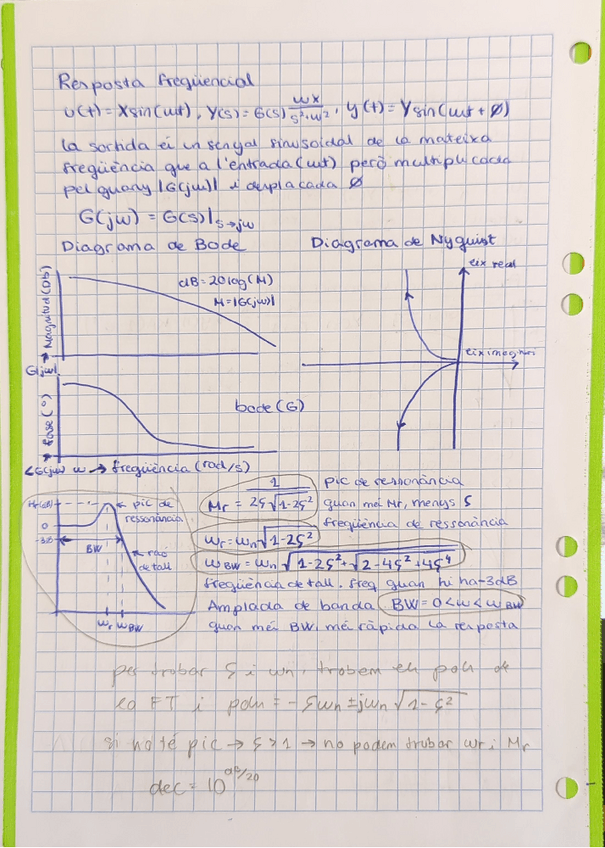 Resposta freqüencial
u(t) = X sin(ωt), Y(s) = G(s) ωx/s²+ω², y(t) = Y sin(ωt + Ø)
La sortida és un senyal sinusoidal de la mateixa
freqüència que a l'entrada (ωt) però multiplicada
pel guany |G(jω)| i desplaçada Ø
G(jω) = G(s)|s→jω
Diagrama de Bode
Diagrama de Nyquist
Magnitud (DB)
dB = 20 log (M)
M = |G(jω)|
eix real
eix imaginari
|G(jω)|
Fase (°)
bode (G)
∠G(jω) ω → freqüència (rad/s)
Mr(dB)
0
-3dB
BW
pic de
ressonància
raó
de tall
ωr ωBW
Mr = 1/2ζ√1-2ζ² pic de ressonància
quan més Mr, menys ζ
ωr = ωn√1-2ζ² freqüència de ressonància
ωBW = ωn √1-2ζ²+√2-4ζ²+4ζ⁴
freqüència de tall. Freq quan hi ha -3dB
Amplada de banda BW = 0<ω<ωBW
quan més BW, més ràpida la resposta
per trobar ζ i ωn, trobem els pols de
la FT i pols = -ζωn ± jωn √1-ζ²
si no té pic → ζ>1 → no podem trobar ωr i Mr
dec = 10^dB/20